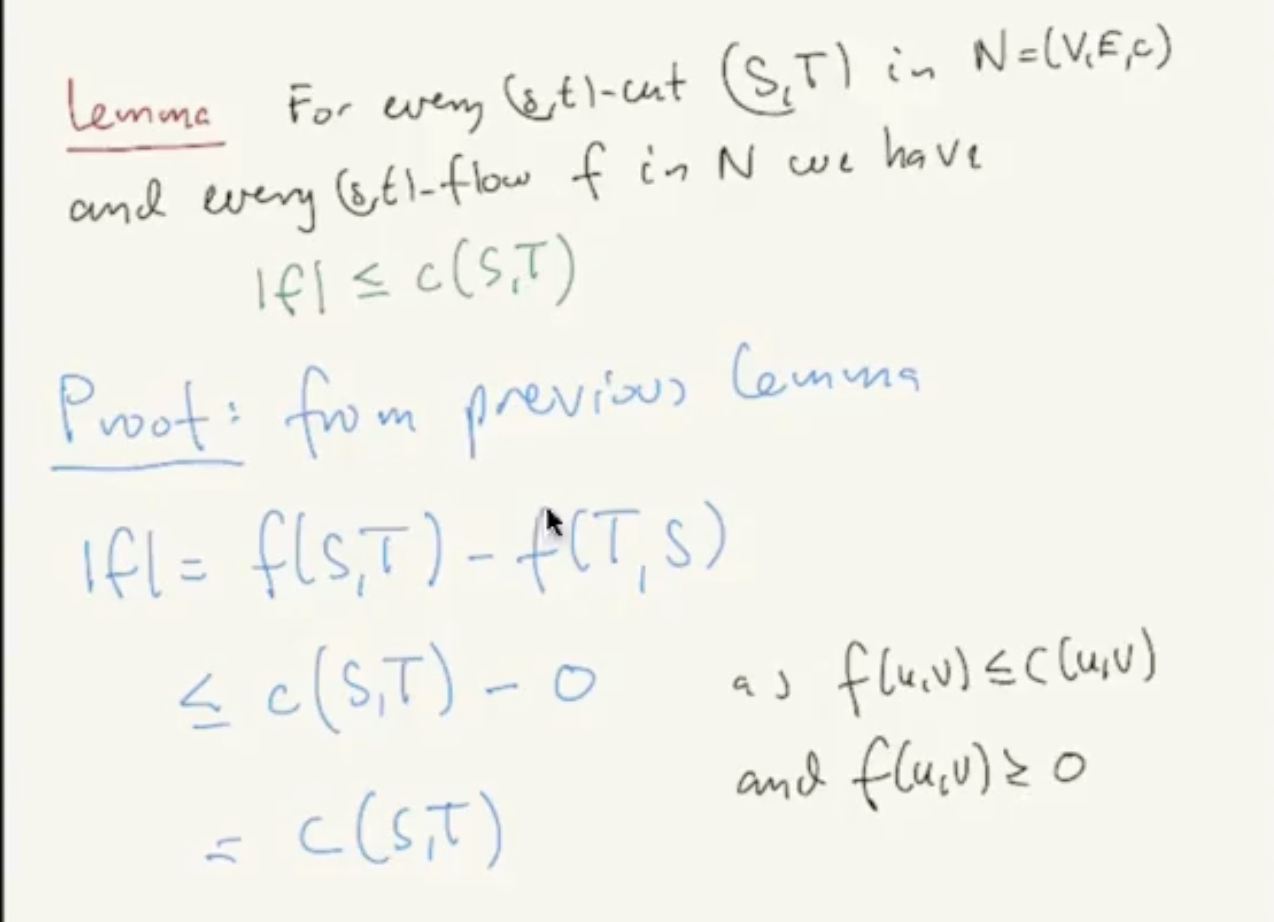 Lemma For every (s,t)-cut (S,T) in N=(V,E,c)
and every (s,t)-flow f in N we have
|f| ≤ c(S,T)
Proof: from previous lemma
|f| = f(S,T) - f(T,S)
≤ c(S,T) - 0 as f(u,v) ≤ c(u,v)
and f(u,v) ≥ 0
= c(S,T)